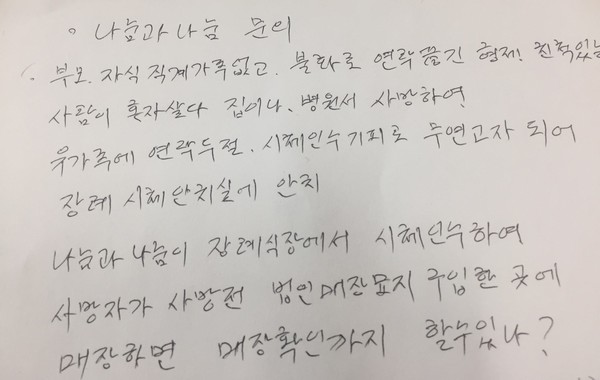 ◦ 나눔과나눔 문의
◦ 부모. 자식 직계가족없고. 불화로 연락끊긴 형제! 친척있는
사람이 혼자살다 집이나, 병원서 사망하여
유가족에 연락두절. 시체인수기피로 무연고자 되어
장례 시체안치실에 안치
나눔과 나눔이 장례식장에서 시체인수하여
사망자가 사망전 법인매장묘지 구입한 곳에
매장하면 매장확인까지 할수있나?